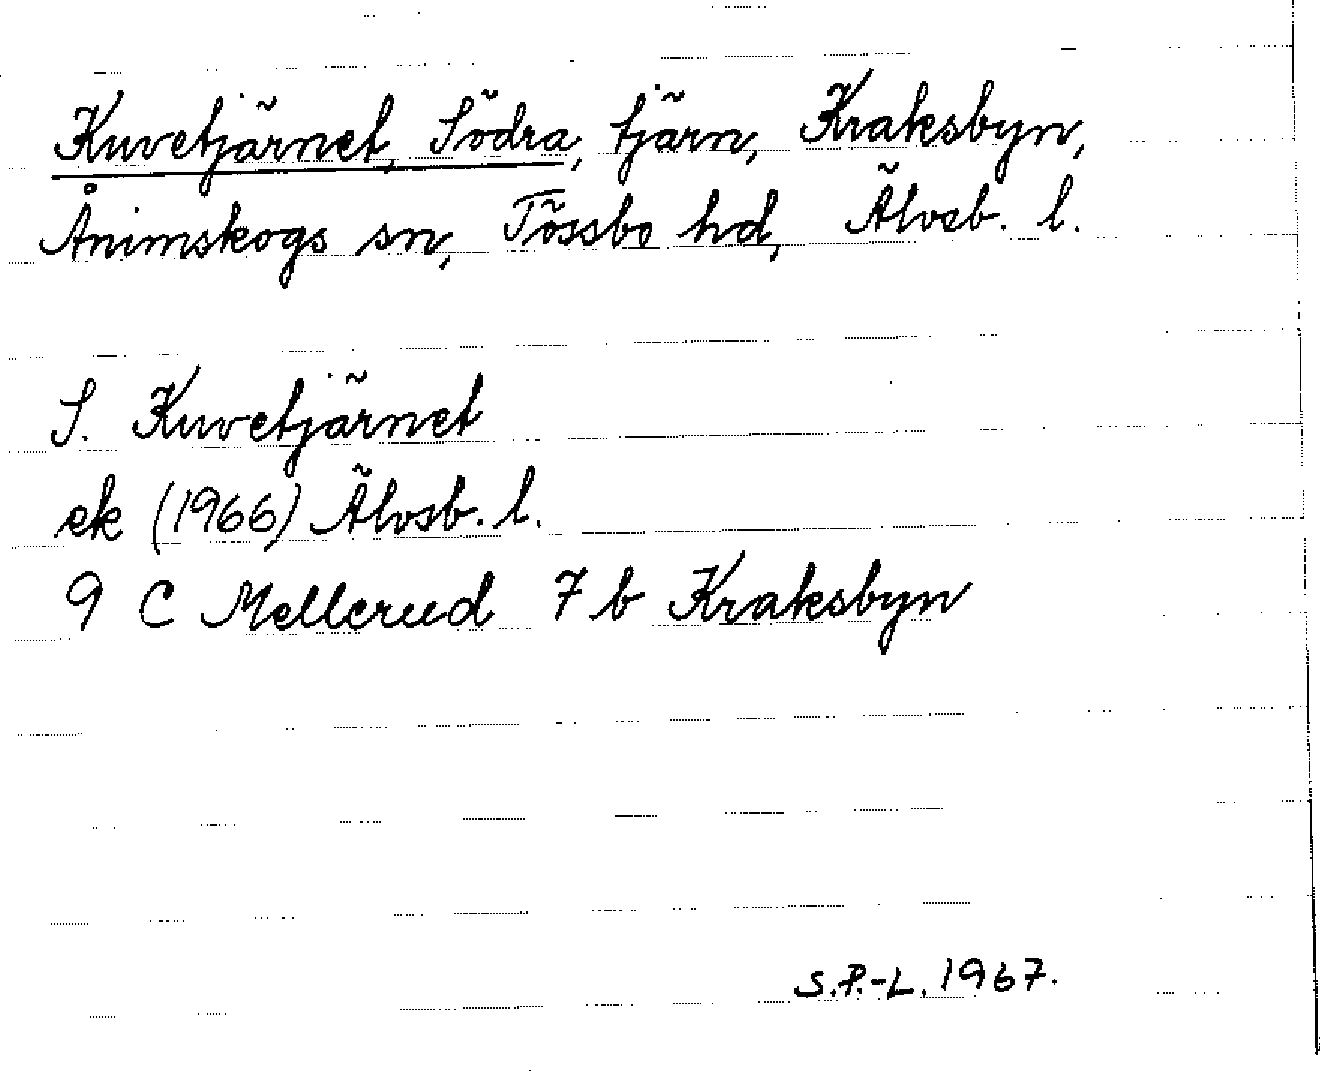 Kuvetjärnet, Södra, tjärn, Kraksbyn,
Ånimskogs sn, Tössbo hd, Älvsb. l.
S. Kuvetjärnet
ek (1966) Älvsb. l.
9 C Mellerud 7 b Kraksbyn
S.P.-L. 1967.